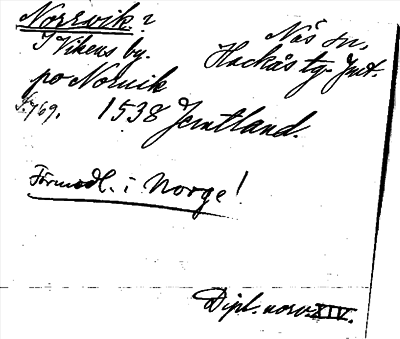 Norrvik ?
I Vikens by.
Näs sn,
Hackås tg. Jmt.
po Norvik
F. 769. 1538 Jemtland.
Förmodl. i Norge!
Dipl. norv. XIV.